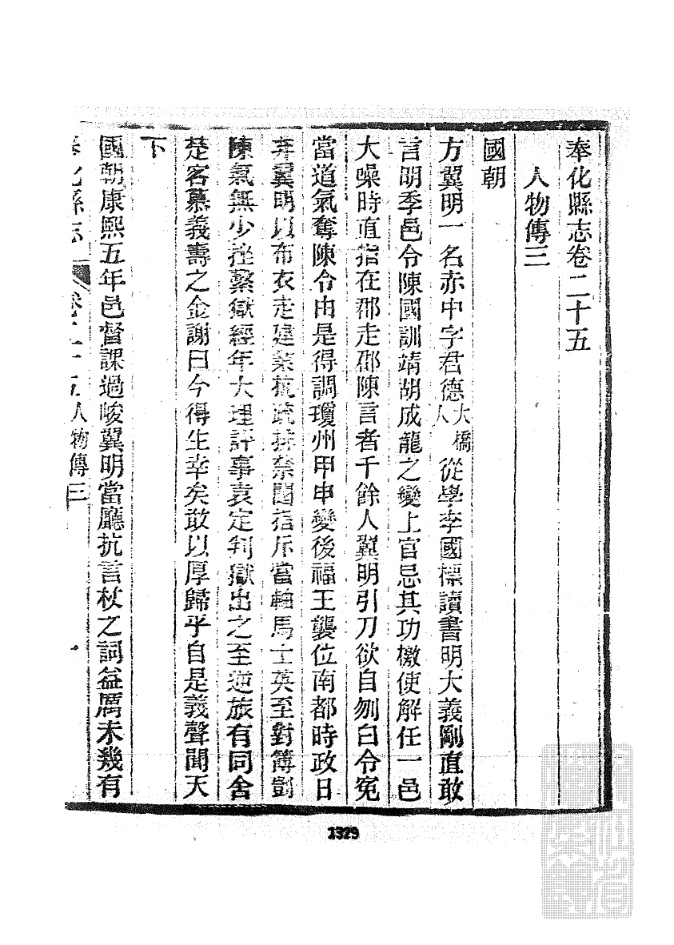 奉化縣志卷二十五
人物傳三
國朝
方翼明一名赤中字君德大橋人從學李國標讀書明大義剛直敢
言明季邑令陳國訓靖胡成龍之變上官忌其功檄使解任一邑
大噪時直指在郡走郡陳言者千餘人翼明引刀欲自刎白令冤
當道氣奪陳令由是得調瓊州甲申變後福王襲位南都時政日
弃翼明以布衣走建業抗疏排禁闥指斥當軸馬士英至對簿劊
陳氣無少挫繫獄經年大理評事袁定判獄出之至逆旅有同舍
楚客慕義壽之金謝曰今得生幸矣敢以厚歸乎自是義聲聞天
下
國朝康熙五年邑督課過峻翼明當廳抗言杖之詞益厲未幾有
奉化縣志 卷二十五 人物傳三 一
1329